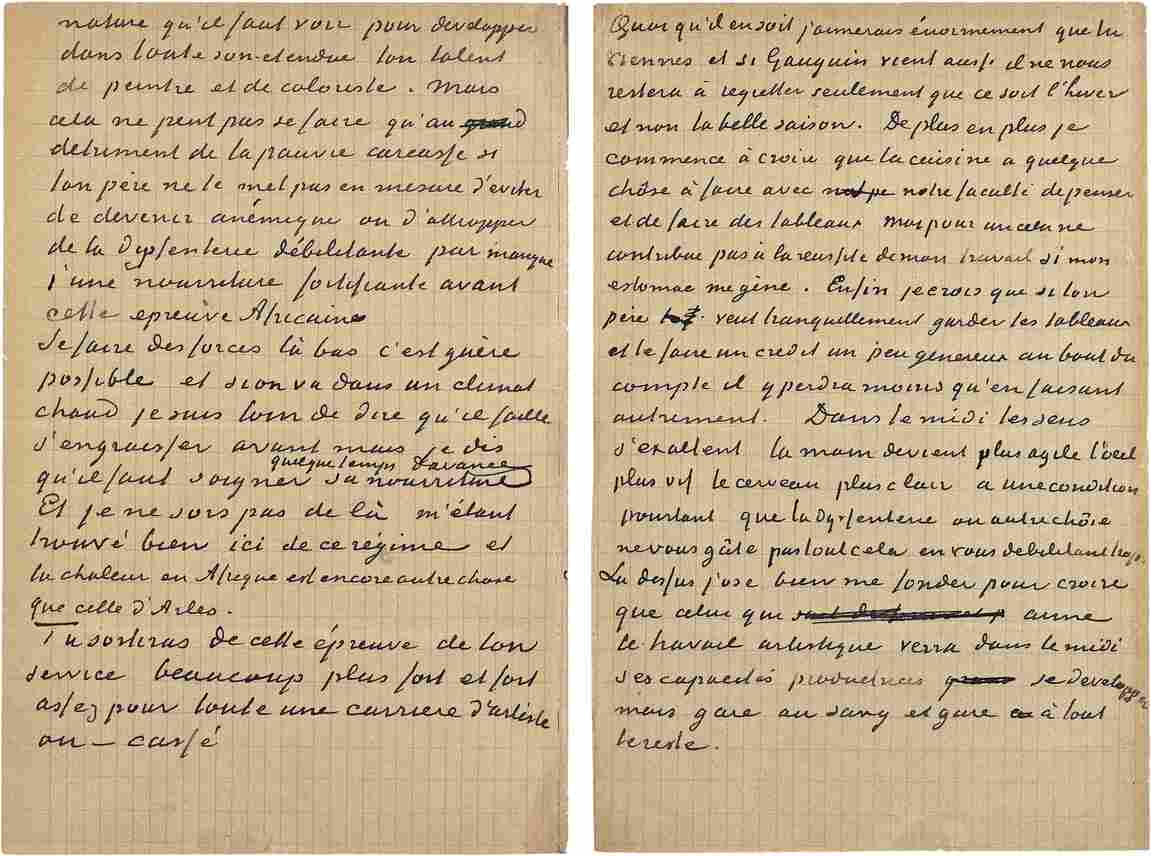 nature qu'il faut voir pour developper
dans toute son etendue ton talent
de peintre et de coloriste. Mais
cela ne peut pas se faire qu'au grand
detrument de ta pauvre carcasse si
ton père ne te met pas en mesure d'eviter
de devenir anémique ou d'attrapper
de la dyssenterie débilitante par manque
d'une nourriture fortifiante avant
cette epreuve Africaine
Se faire des forces là bas c'est guère
possible et si on va dans un climat
chaud je suis loin de dire qu'il faille
s'engraisser avant mais je dis
quelque temps d'avance
qu'il faut soigner sa nourriture
Et je ne sors pas de là m'étant
trouvé bien ici de ce régime et
la chaleur en Afrique est encore autre chose
que celle d'Arles.
Tu sortiras de cette épreuve de ton
service beaucoup plus fort et fort
assez pour toute une carriere d'artiste
ou – cassé
Quoi qu'il en soit j'aimerais énormement que tu
viennes et si Gauguin vient aussi il ne nous
restera à regretter seulement que ce soit l'hiver
et non la belle saison. De plus en plus je
commence à croire que la cuisine a quelque
chôse à faire avec notre faculté de penser
et de faire des tableaux moi pour un cela ne
contribue pas à la reussite de mon travail si mon
estomac me gène. Enfin je crois que si ton
père veut tranquillement garder tes tableaux
et te faire un credit un peu genereux au bout du
compte il y perdra moins qu'en faisant
autrement. Dans le midi les sens
s'exaltent la main devient plus agile l'oeil
plus vif le cerveau plus clair a une condition
pourtant que la dyssenterie ou autre chôse
ne vous gâte pas tout cela en vous debilitant trop.
La dessus j'ose bien me fonder pour croire
que celui qui aime
le travail artistique verra dans le midi
ses capacités productrices se developper
mais gare au sang et gare à tout
le reste.